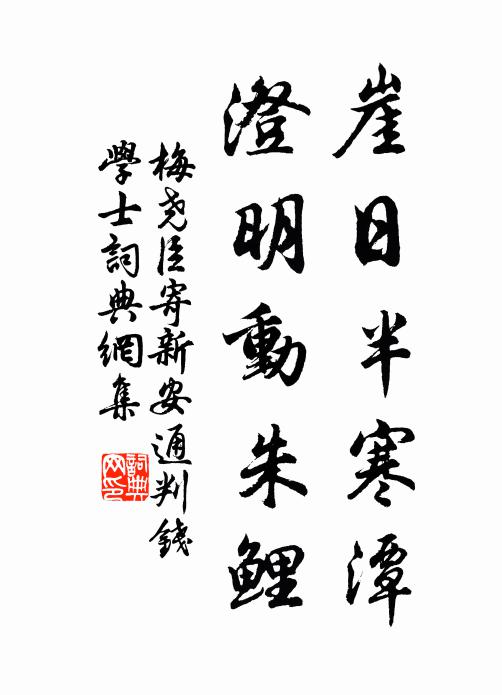 崖日半寒潭
澄明動朱鯉
梅尧臣寄新安通判錢
學士詞典網集
詞典網印